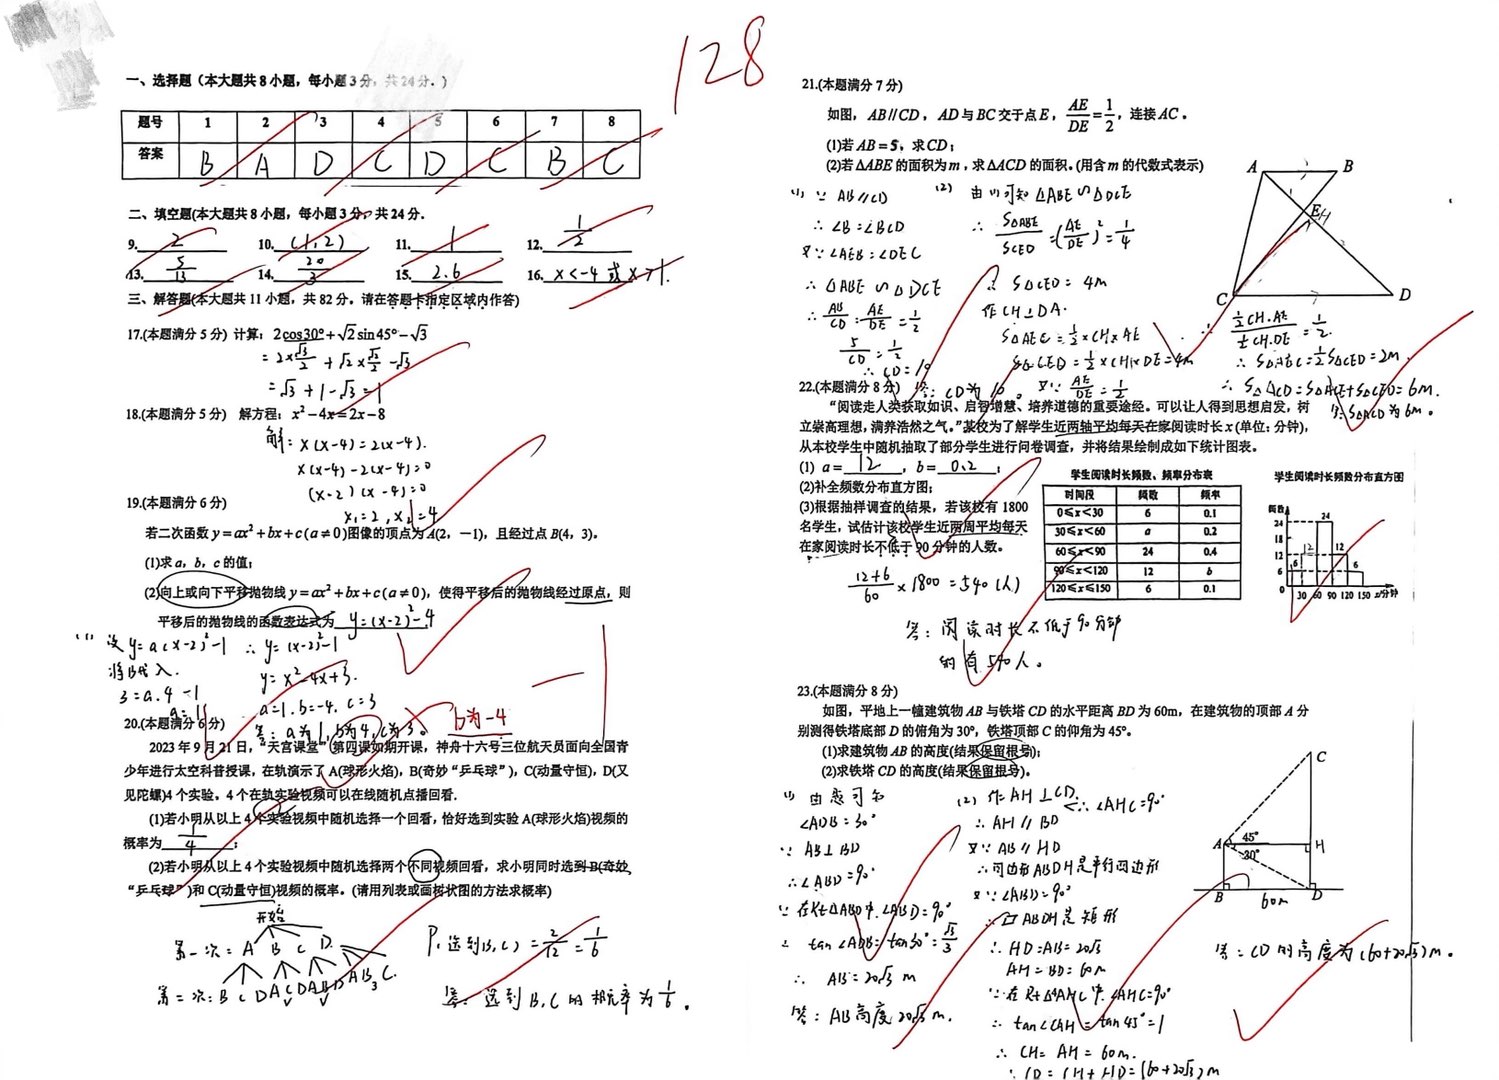 128
一、选择题（本大题共8小题，每小题3分，共24分．）
题号 1 2 3 4 5 6 7 8
答案 B A D C D C B C
二、填空题(本大题共8小题，每小题3分，共24分．
9. 2 10. (1,2) 11. 1 12. 1/2
13. 5/13 14. 20/3 15. 2.6 16. x<-4 或 x>1.
三、解答题(本大题共11小题，共82分。请在答题卡指定区域内作答)
17.(本题满分5分) 计算：2cos30°+√2sin45°−√3
= 2×√3/2 + √2×√2/2 −√3
=√3+1−√3=1
18.(本题满分5分) 解方程：x²−4x=2x−8
解：x(x-4)=2(x-4).
x(x-4)-2(x-4)=0
(x-2)(x-4)=0
x₁=2, x₂=4
19.(本题满分6分)
若二次函数y=ax²+bx+c(a≠0)图像的顶点为A(2，−1)，且经过点B(4，3)。
(1)求a，b，c的值；
(2)向上或向下平移抛物线y=ax²+bx+c(a≠0)，使得平移后的抛物线经过原点，则
平移后的抛物线的函数表达式为 y=(x-2)²-4
(1) 设y=a(x-2)²-1 ∴y=(x-2)²-1
将B代入. y=x²-4x+3.
3=a·4-1 a=1.b=-4, c=3
a=1 答：a为1,b为4,c为3。 b为-4
20.(本题满分6分)
2023年9月21日，“天宫课堂”第四课如期开课，神舟十六号三位航天员面向全国青
少年进行太空科普授课，在轨演示了A(球形火焰)，B(奇妙“乒乓球”)，C(动量守恒)，D(又
见陀螺)4个实验。4个在轨实验视频可以在线随机点播回看．
(1)若小明从以上4个实验视频中随机选择一个回看，恰好选到实验A(球形火焰)视频的
概率为 1/4 ；
(2)若小明从以上4个实验视频中随机选择两个不同视频回看，求小明同时选到B(奇妙
“乒乓球”)和C(动量守恒)视频的概率。(请用列表或画树状图的方法求概率)
开始
第一次：A B C D
第二次：B C D A C D A B D A B C.
P.选到(B,C)=2/12=1/6
答：选到B,C的概率为1/6。
21.(本题满分7分)
如图，AB∥CD，AD与BC交于点E，AE/DE=1/2，连接AC。
(1)若AB=5，求CD；
(2)若△ABE的面积为m，求△ACD的面积。(用含m的代数式表示)
A B E H C D
(1) ∵ AB∥CD
∴ ∠B=∠BCD
又∵∠AEB=∠DEC
∴ △ABE∽△DCE
∴ AB/CD=AE/DE=1/2
5/CD=1/2
∴CD=10
答：CD为10。
(2) 由(1)可知△ABE∽△DCE
∴ S△ABE/SCED=(AE/DE)²=1/4
∴ S△CED=4m
作CH⊥DA.
S△AEC=1/2×CH×AE
S△CED=1/2×CH×DE=4m
又∵ AE/DE=1/2
∴ ½CH.AE/½CH.DE=1/2.
∴ S△AEC=1/2S△CED=2m.
∴ S△ACD=S△ACE+S△CED=6m.
答:S△ACD为6m。
22.(本题满分8分)
“阅读走人类获取如识、启智增慧、培养道德的重要途经。可以让人得到思想启发，树
立崇高理想，满养浩然之气。”某校为了解学生近两轴平均每天在家阅读时长x(单位：分钟)，
从本校学生中随机抽取了部分学生进行问卷调查，并将结果绘制成如下统计图表。
(1) a= 12 ，b= 0.2 ；
(2)补全频数分布直方图；
(3)根据抽样调查的结果，若该校有1800
名学生，试估计该校学生近两周平均每天
在家阅读时长不低于90分钟的人数。
学生阅读时长频数、频率分布表
时间段 频数 频率
0≤x<30 6 0.1
30≤x<60 a 0.2
60≤x<90 24 0.4
90≤x<120 12 b
120≤x≤150 6 0.1
学生阅读时长频数分布直方图
频数
24 18 12 6 0
6 12 24 12 6
30 60 90 120 150 x/分钟
12+6/60×1800=540(人)
答：阅读时长不低于90分钟
的有540人。
23.(本题满分8分)
如图，平地上一幢建筑物AB与铁塔CD的水平距离BD为60m，在建筑物的顶部A分
别测得铁塔底部D的俯角为30°，铁塔顶部C的仰角为45°。
(1)求建筑物AB的高度(结果保留根号)；
(2)求铁塔CD的高度(结果保留根号)。
C A 45° 30° H B 60m D
(1) 由题可知
∠ADB=30°
∵ AB⊥BD
∴∠ABD=90°
∵在Rt△ABD中.∠ABD=90°
∴ tan∠ADB=tan30°=√3/3
∴ AB=20√3 m
答：AB高度20√3m.
(2) 作AH⊥CD. ∴∠AHC=90°
∴AH∥BD
又∵AB∥HD
∴四边形ABDH是平行四边形
又∵∠ABD=90°
∴▱ABDH是矩形
∴HD=AB=20√3
AH=BD=60m
∵在Rt△AHC中.∠AHC=90°
∴ tan∠CAH=tan45°=1
∴ CH=AH=60m.
∴ CD=CH+HD=(60+20√3)m
答：CD的高度为(60+20√3)m。